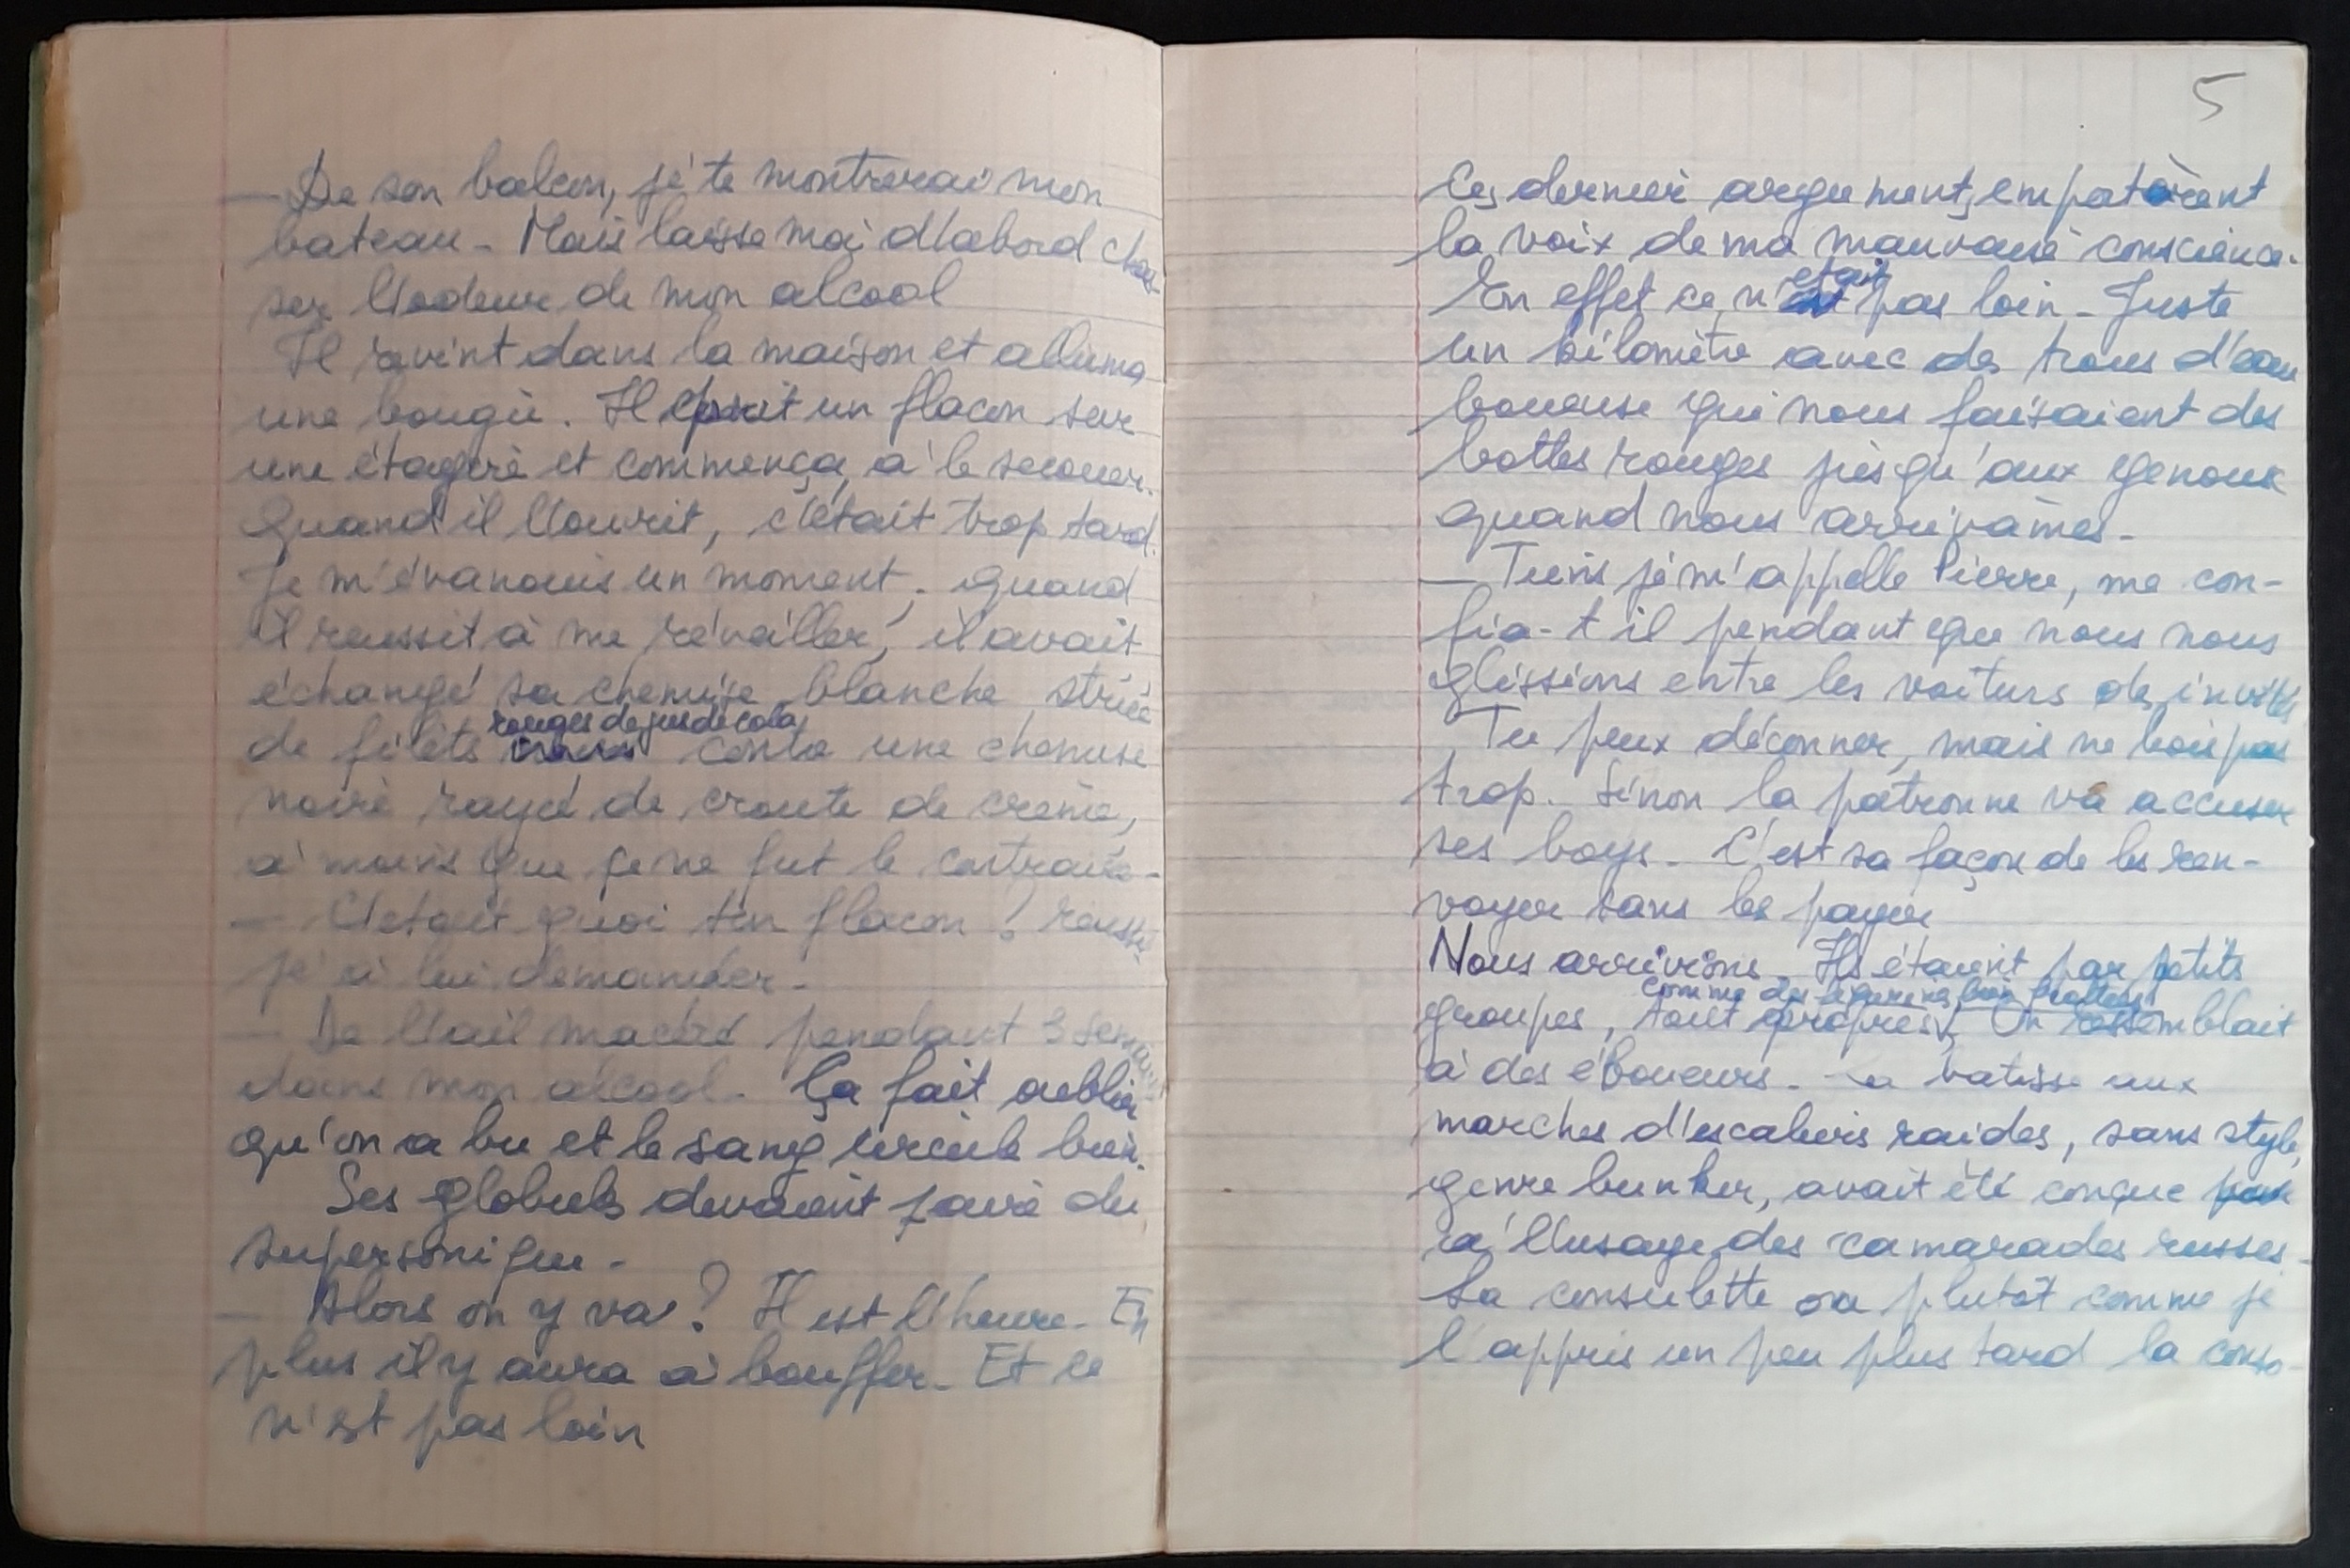 — De son balcon, je te montrerai mon
bateau - Mais laisse moi d'abord chas-
ser l'odeur de mon alcool
Il revint dans la maison et alluma
une bougie. Il prit un flacon sur
une étagère et commença à le secouer.
Quand il l'ouvrit, c'était trop tard.
Je m'évanouis un moment. Quand
il reussit à me réveiller, il avait
échangé sa chemise blanche striée
rouges de jus de cola
de filets contre une chemise
noire rayée de croute de crème,
à moins que ce ne fut le contraire -
— C'etait quoi ton flacon ? réussis
je à lui demander -
— De l'ail macéré pendant 3 semaines
dans mon alcool - Ça fait oublier
qu'on a bu et le sang circule bien.
Ses globules devaient faire du
supersonique -
— Alors on y va ? Il est l'heure - En
plus il y aura à bouffer - Et ce
n'est pas loin
5
Ces dernier arguments emportèrent
la voix de ma mauvaise conscience -
etait
En effet ce n' pas loin - Juste
un kilomètre avec des trous d'eau
boueuse qui nous faisaient des
bottes rouges jusqu'aux genoux
quand nous arrivâmes -
— Tiens je m'appelle Pierre, me con-
fia-t il pendant que nous nous
glissions entre les voitures des invités
Tu peux déconner, mais ne bois pas
trop - Sinon la patronne va accuser
ses boys - C'est sa façon de les ren-
voyer sans les payer
Nous arrivions - Ils étaient par petits
comme des figurines
groupes, tout propres, On ressemblait
à des éboueurs - La batisse aux
marches d'escaliers raides, sans style,
genre bunker, avait été conçue
à l'usage des camarades russes -
La consulette ou plutôt comme je
l'appris un peu plus tard la conso-